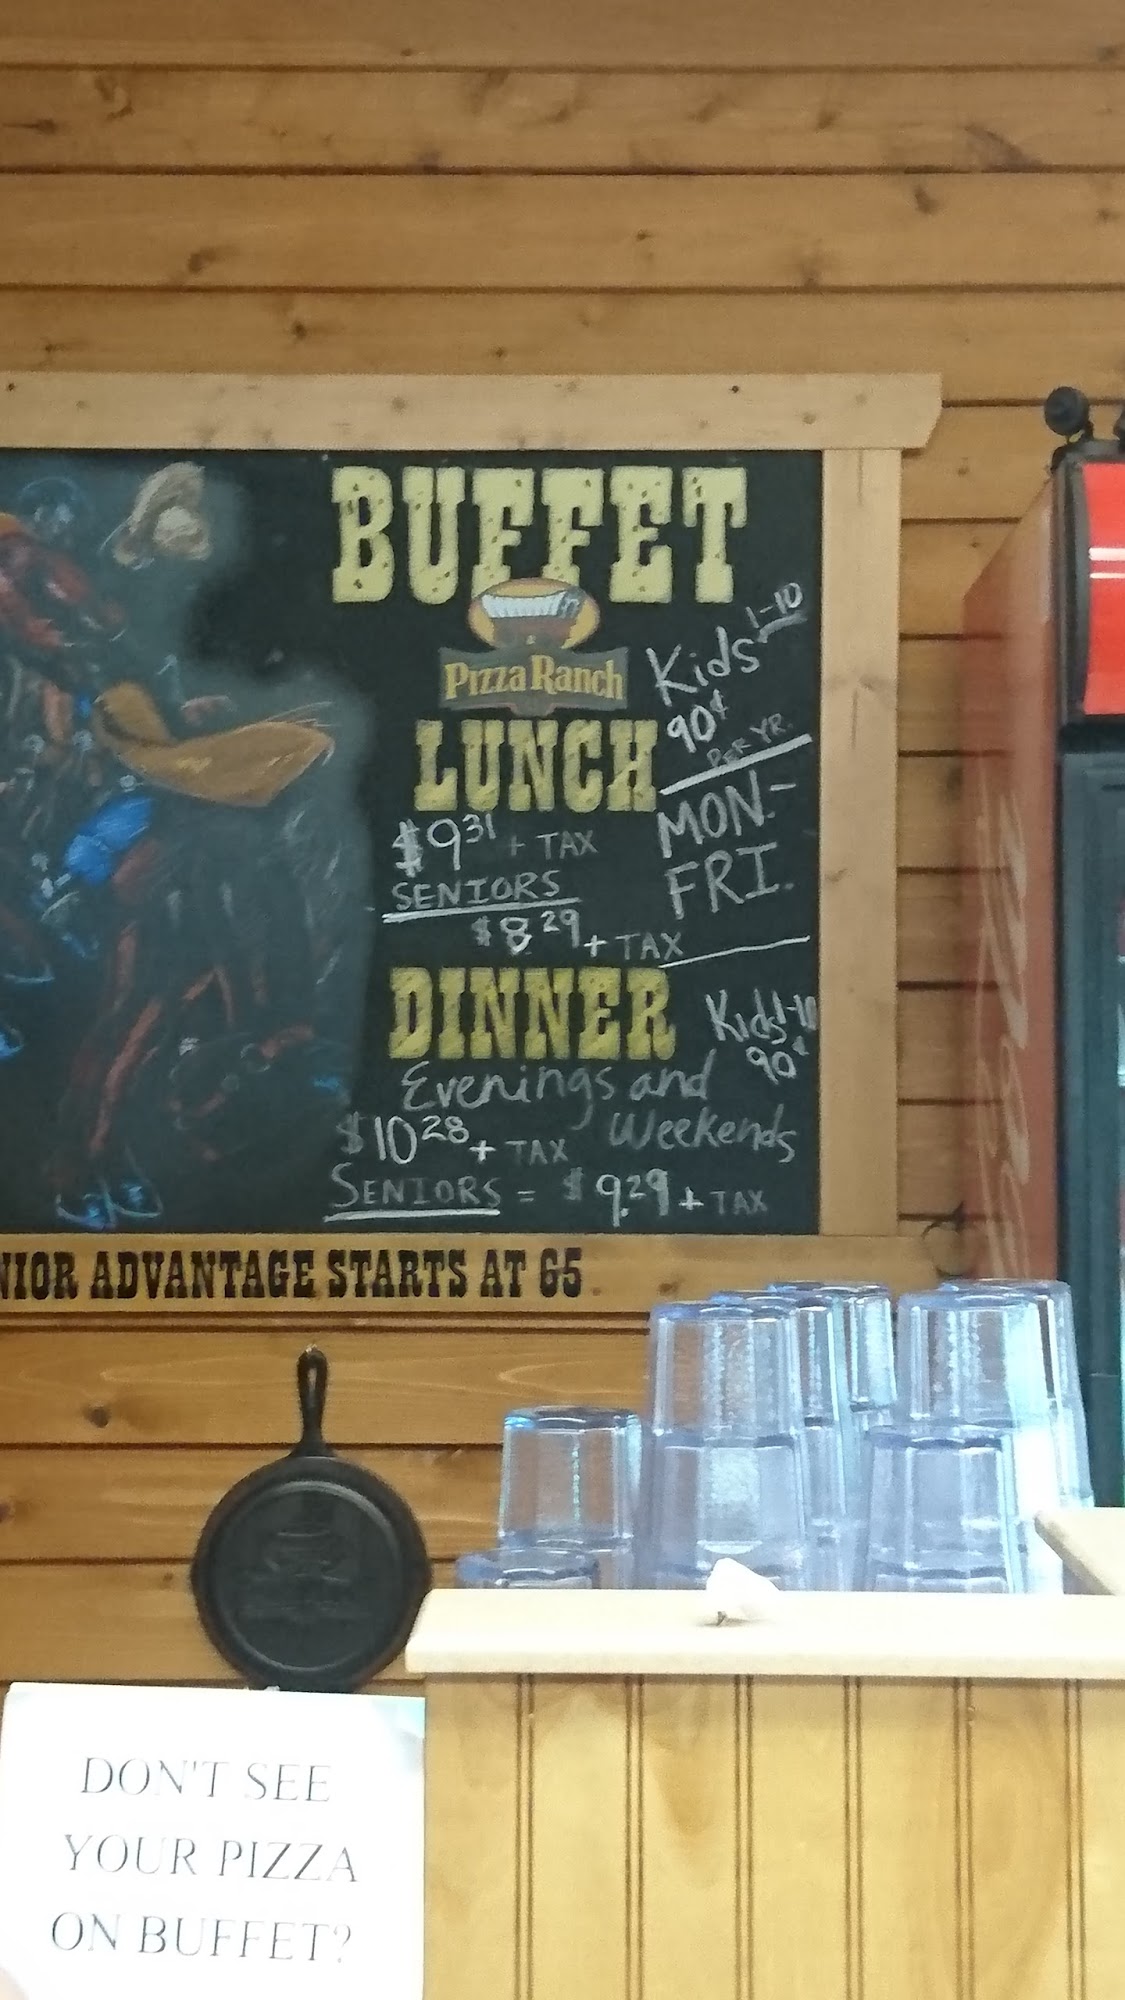 BUFFET
Pizza Ranch
Kids 1-10
90¢
PER YR.
LUNCH
MON.-
FRI.
$9 31 + TAX
SENIORS
$8 29 + TAX
DINNER
Kids 1-10
90¢
Evenings and
Weekends
$10 28 + TAX
SENIORS = $9.29 + TAX
NIOR ADVANTAGE STARTS AT 65
DON'T SEE
YOUR PIZZA
ON BUFFET?